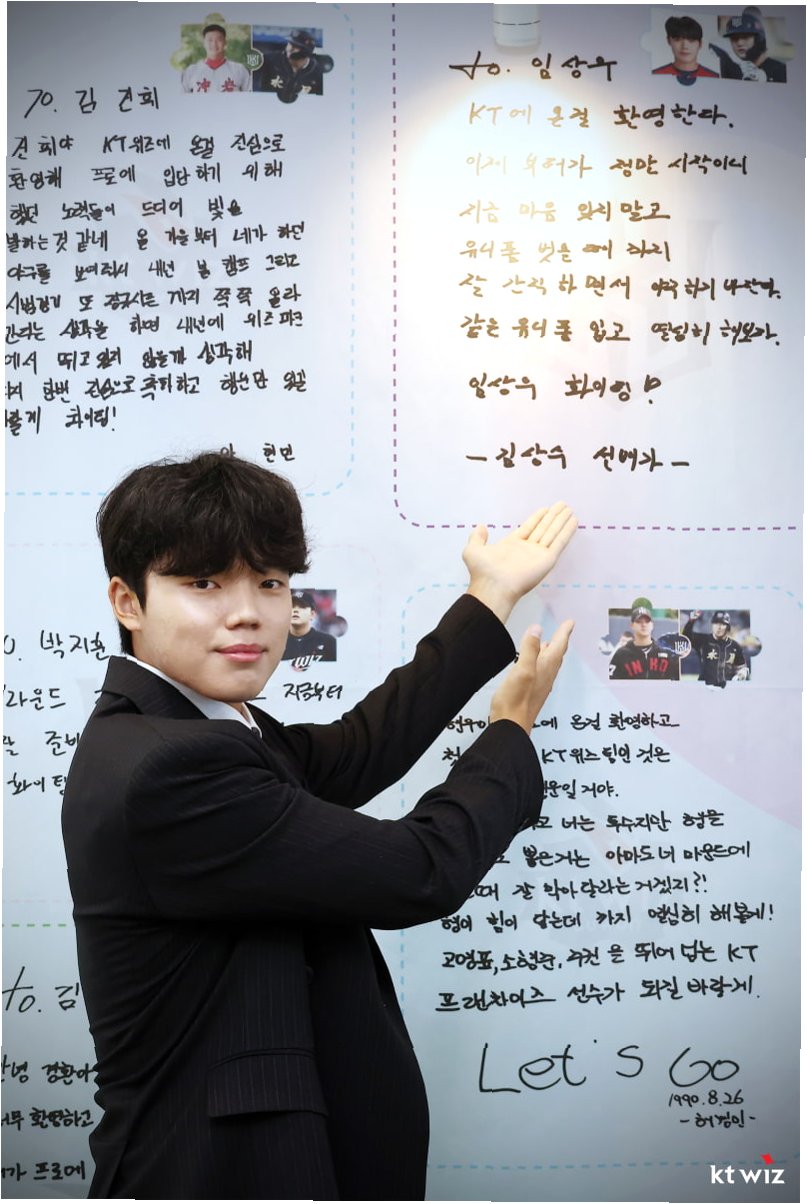 to. 김 건희
건희야 KT위즈에 온걸 진심으로
환영해 프로에 입단하기 위해
했던 노력들이 드디어 빛을
발하는것 같네 올 가을부터 네가 하던
야구를 보여줘서 내년 봄 캠프 그리고
시범경기 또 정규시즌까지 쭉 쭉 올라
간다는 생각을 하면 내년에 위즈파크
에서 뛰고 있지 않을까 생각해
다시 한번 진심으로 축하하고
할게 화이팅!
현민
to. 임상우
KT에 온걸 환영한다.
이제 부터가 정말 시작이니
지금 마음 잊지말고
유니폼 벗을 때 까지
잘 간직하면서 야구하기 바란다.
같은 유니폼 입고 열심히 해보자.
임상우 화이팅!
- 김상수 선배가 -
박지훈
라운드 지금부터
준비
화이팅
WIZ
INKO
에 온걸 환영하고
KT위즈팀인 것은
운일 거야.
고 너는 투수지만 형을
뽑은거는 아마도 너 마운드에
때 잘 막아달라는거겠지?!
형이 힘이 닿는데 까지 열심히 해볼게!
고영표, 소형준, 주권 을 뛰어 넘는 KT
프랜차이즈 선수가 되길 바랄게.
Let's Go
1990.8.26
- 허경민 -
to. 김
안녕 경환아
너무 환영하고
프로에
kt wiz